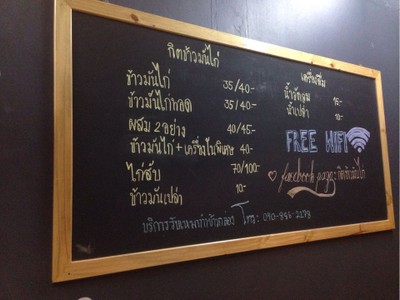 กิตข้าวมันไก่
ข้าวมันไก่ 35/40-
ข้าวมันไก่ทอด 35/40-
ผสม 2 อย่าง 40/45-
ข้าวมันไก่ + เครื่องในพิเศษ 40-
ไก่สับ 70/100-
ข้าวมันเปล่า 10-
เครื่องดื่ม
น้ำอัดลม 15-
น้ำเปล่า 10-
FREE WIFI
facebook page: กิตข้าวมันไก่
บริการรับเหมาทำข้าวกล่อง โทร: